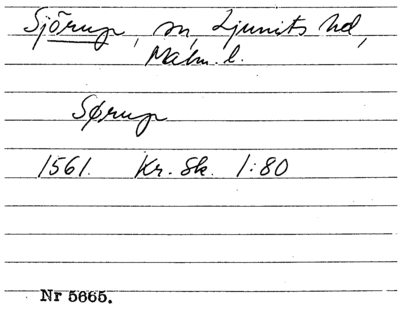 Sjörup, sn, Ljunits hd,
Malm. l.
Sørup
1561. Kr. Sk. 1:80
Nr 5665.